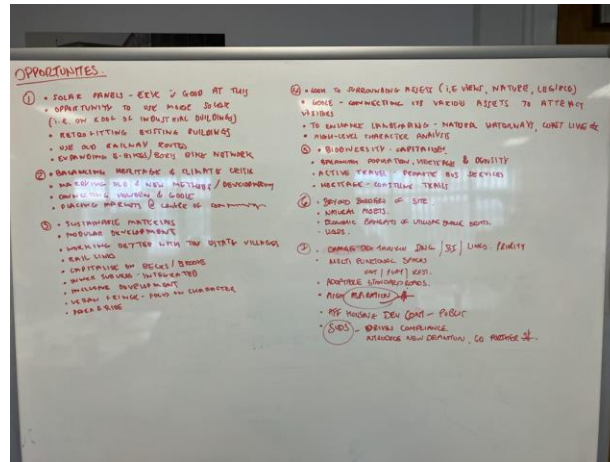 OPPORTUNITIES.
① • SOLAR PANELS - ERYC is GOOD AT THIS
• OPPORTUNITY TO USE MORE SOLAR
(i.e. ON ROOF OF INDUSTRIAL BUILDINGS)
• RETROFITTING EXISTING BUILDINGS
• USE OLD RAILWAY ROUTES
• EXPANDING E-BIKES / BORIS BIKE NETWORK
② • BALANCING HERITAGE & CLIMATE CRISIS
• MARRYING OLD & NEW METHODS / DEVELOPMENT
• CONNECTING HOWDEN & GOOLE
• PLACING MARKETS @ CENTRE OF
③ • SUSTAINABLE MATERIALS
• MODULAR DEVELOPMENT
• WORKING BETTER WITH THE ESTATE VILLAGES
• RAIL LINKS
• CAPITALISE ON BECKS /
• INNER SUBURB - INTEGRATED
• INCLUSIVE DEVELOPMENT
• URBAN FRINGE - FOCUS ON CHARACTER
• PARK & RIDE
④ • LOOK TO SURROUNDING ASSETS (i.e VIEWS, NATURE,
• GOOLE - CONNECTING ITS VARIOUS ASSETS TO ATTRACT
VISITORS
• TO ENHANCE LANDSCAPING - NATURE WATERWAYS,
• HIGH-LEVEL CHARACTER ANALYSIS
⑤ • BIODIVERSITY - CAPITALISE,
• BALANCING POPULATION, HERITAGE & IDENTITY
• ACTIVE TRAVEL - PROMOTE BUS SERVICES
• HERITAGE - COASTLINE TRAILS
⑥ • BEYOND BORDERS OF SITE
• NATURAL ASSETS.
• ECONOMIC BENEFITS OF
⑦ • / LINKS. PRIORITY
• MULTI FUNCTIONAL SPACES
EAT / PLAY / REST.
• ADOPTABLE STANDARD ROADS.
• HIGH
• HOUSING DEV CONT - PUBLIC
• SUDS - DRIVEN COMPLIANCE
INTRODUCE NEW DEFINITION, GO FURTHER